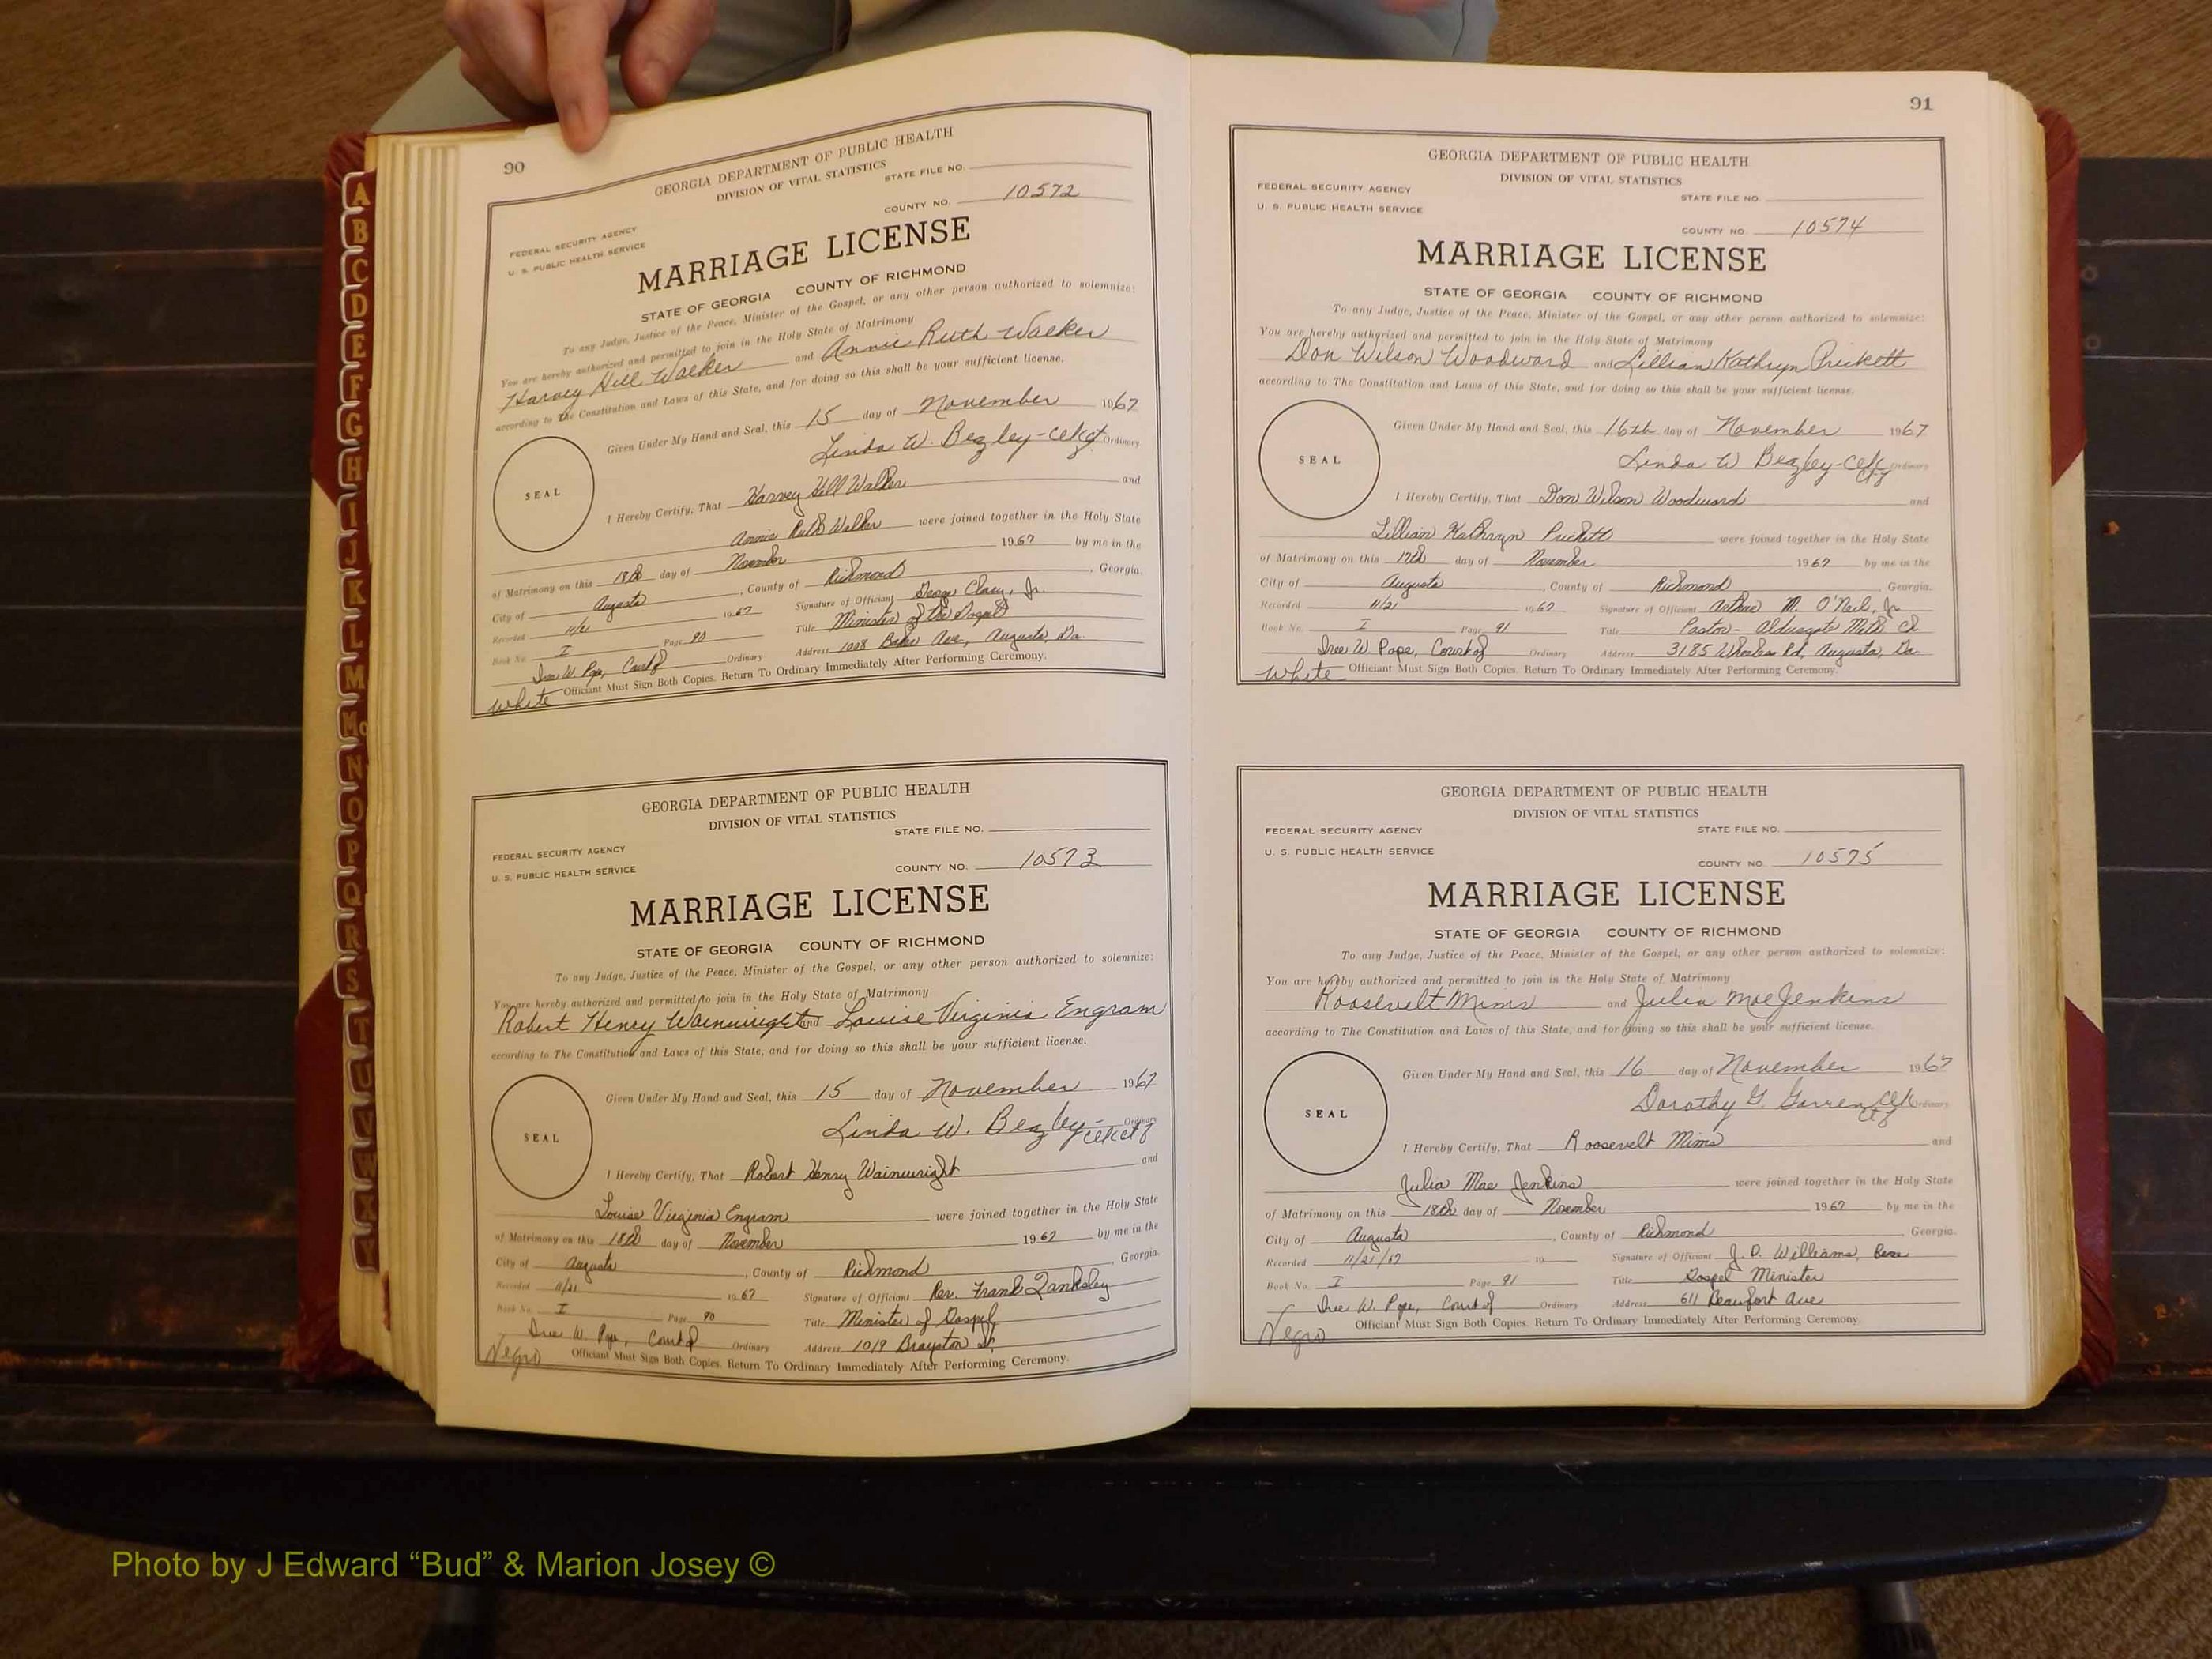 90
GEORGIA DEPARTMENT OF PUBLIC HEALTH
DIVISION OF VITAL STATISTICS
STATE FILE NO.
FEDERAL SECURITY AGENCY
U. S. PUBLIC HEALTH SERVICE
COUNTY NO. 10572
MARRIAGE LICENSE
STATE OF GEORGIA COUNTY OF RICHMOND
To any Judge, Justice of the Peace, Minister of the Gospel, or any other person authorized to solemnize:
You are hereby authorized and permitted to join in the Holy State of Matrimony
Harvey Hill Walker and Annie Ruth Walker
according to The Constitution and Laws of this State, and for doing so this shall be your sufficient license.
Given Under My Hand and Seal, this 15 day of November 1967
Linda W. Beazley-Clk Ordinary
SEAL
I Hereby Certify, That Harvey Hill Walker and
Annie Ruth Walker were joined together in the Holy State
of Matrimony on this 18th day of November 1967 by me in the
City of Augusta, County of Richmond, Georgia.
Recorded 11/21 1967 Signature of Officiant Clary, Jr.
Book No. I Page 90 Title Minister of the Gospel
W. Pope, Court of Ordinary Address 1008 Baker Ave, Augusta, Ga.
White Officiant Must Sign Both Copies. Return To Ordinary Immediately After Performing Ceremony.
GEORGIA DEPARTMENT OF PUBLIC HEALTH
DIVISION OF VITAL STATISTICS
STATE FILE NO.
FEDERAL SECURITY AGENCY
U. S. PUBLIC HEALTH SERVICE
COUNTY NO. 10573
MARRIAGE LICENSE
STATE OF GEORGIA COUNTY OF RICHMOND
To any Judge, Justice of the Peace, Minister of the Gospel, or any other person authorized to solemnize:
You are hereby authorized and permitted to join in the Holy State of Matrimony
Robert Henry Wainwright and Louise Virginia Engram
according to The Constitution and Laws of this State, and for doing so this shall be your sufficient license.
Given Under My Hand and Seal, this 15 day of November 1967
Linda W. Beazley- Ordinary
SEAL
I Hereby Certify, That Robert Henry Wainwright and
Louise Virginia Engram were joined together in the Holy State
of Matrimony on this 18th day of November 1967 by me in the
City of Augusta, County of Richmond, Georgia.
Recorded 11/21 1967 Signature of Officiant Rev. Frank Tanksley
Book No. I Page 90 Title Minister of Gospel
W. Pope, Court of Ordinary Address 1019
Negro Officiant Must Sign Both Copies. Return To Ordinary Immediately After Performing Ceremony.
91
GEORGIA DEPARTMENT OF PUBLIC HEALTH
DIVISION OF VITAL STATISTICS
FEDERAL SECURITY AGENCY
STATE FILE NO.
U. S. PUBLIC HEALTH SERVICE
COUNTY NO. 10574
MARRIAGE LICENSE
STATE OF GEORGIA COUNTY OF RICHMOND
To any Judge, Justice of the Peace, Minister of the Gospel, or any other person authorized to solemnize:
You are hereby authorized and permitted to join in the Holy State of Matrimony
Don Wilson Woodward and Lillian Kathryn Prickett
according to The Constitution and Laws of this State, and for doing so this shall be your sufficient license.
Given Under My Hand and Seal, this 16th day of November 1967
Linda W Beazley-Clk Ordinary
SEAL
I Hereby Certify, That Don Wilson Woodward and
Lillian Kathryn Prickett were joined together in the Holy State
of Matrimony on this 17th day of November 1967 by me in the
City of Augusta, County of Richmond, Georgia.
Recorded 11/21 1967 Signature of Officiant Arthur M. O'Neil, Jr.
Book No. I Page 91 Title Pastor- Aldersgate Meth Ch
W. Pope, Court of Ordinary Address 3185 Wheeless Rd, Augusta, Ga.
White Officiant Must Sign Both Copies. Return To Ordinary Immediately After Performing Ceremony.
GEORGIA DEPARTMENT OF PUBLIC HEALTH
DIVISION OF VITAL STATISTICS
FEDERAL SECURITY AGENCY
STATE FILE NO.
U. S. PUBLIC HEALTH SERVICE
COUNTY NO. 10575
MARRIAGE LICENSE
STATE OF GEORGIA COUNTY OF RICHMOND
To any Judge, Justice of the Peace, Minister of the Gospel, or any other person authorized to solemnize:
You are hereby authorized and permitted to join in the Holy State of Matrimony
Roosevelt Mims and Julia Mae Jenkins
according to The Constitution and Laws of this State, and for doing so this shall be your sufficient license.
Given Under My Hand and Seal, this 16 day of November 1967
Dorothy G. Garren Clk Ordinary
SEAL
I Hereby Certify, That Roosevelt Mims and
Julia Mae Jenkins were joined together in the Holy State
of Matrimony on this 18th day of November 1967 by me in the
City of Augusta, County of Richmond, Georgia.
Recorded 11/21/67 19 Signature of Officiant J. D. Williams,
Book No. I Page 91 Title Gospel Minister
W. Pope, Court of Ordinary Address 611 Beaufort Ave
Negro Officiant Must Sign Both Copies. Return To Ordinary Immediately After Performing Ceremony.
A
B
C
D
E
F
G
H
I
J
K
L
M
Mc
N
O
P
Q
R
S
T
U
V
W
X
Y
Photo by J Edward “Bud” & Marion Josey ©